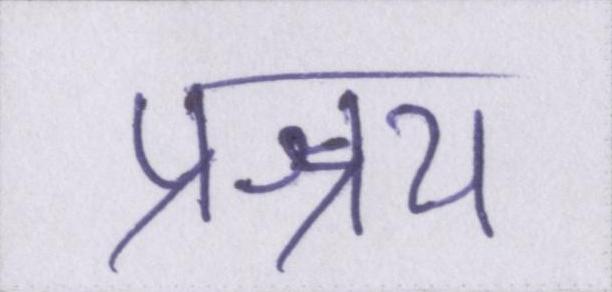 प्रश्रय